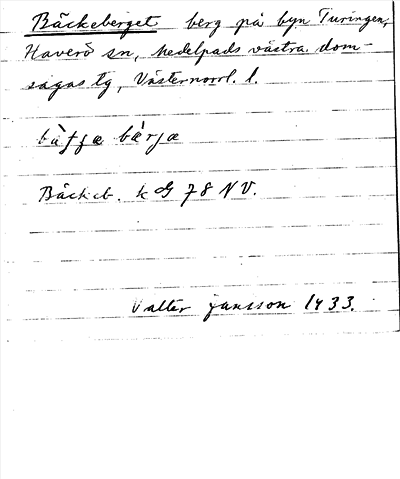 Bäckeberget berg på byn Turingen,
Haverö sn, Medelpads västra dom-
sagas tg, Västernorrl. l.
bärja
Bäckeb. k G 78 NV.
Valter Jansson 1933.